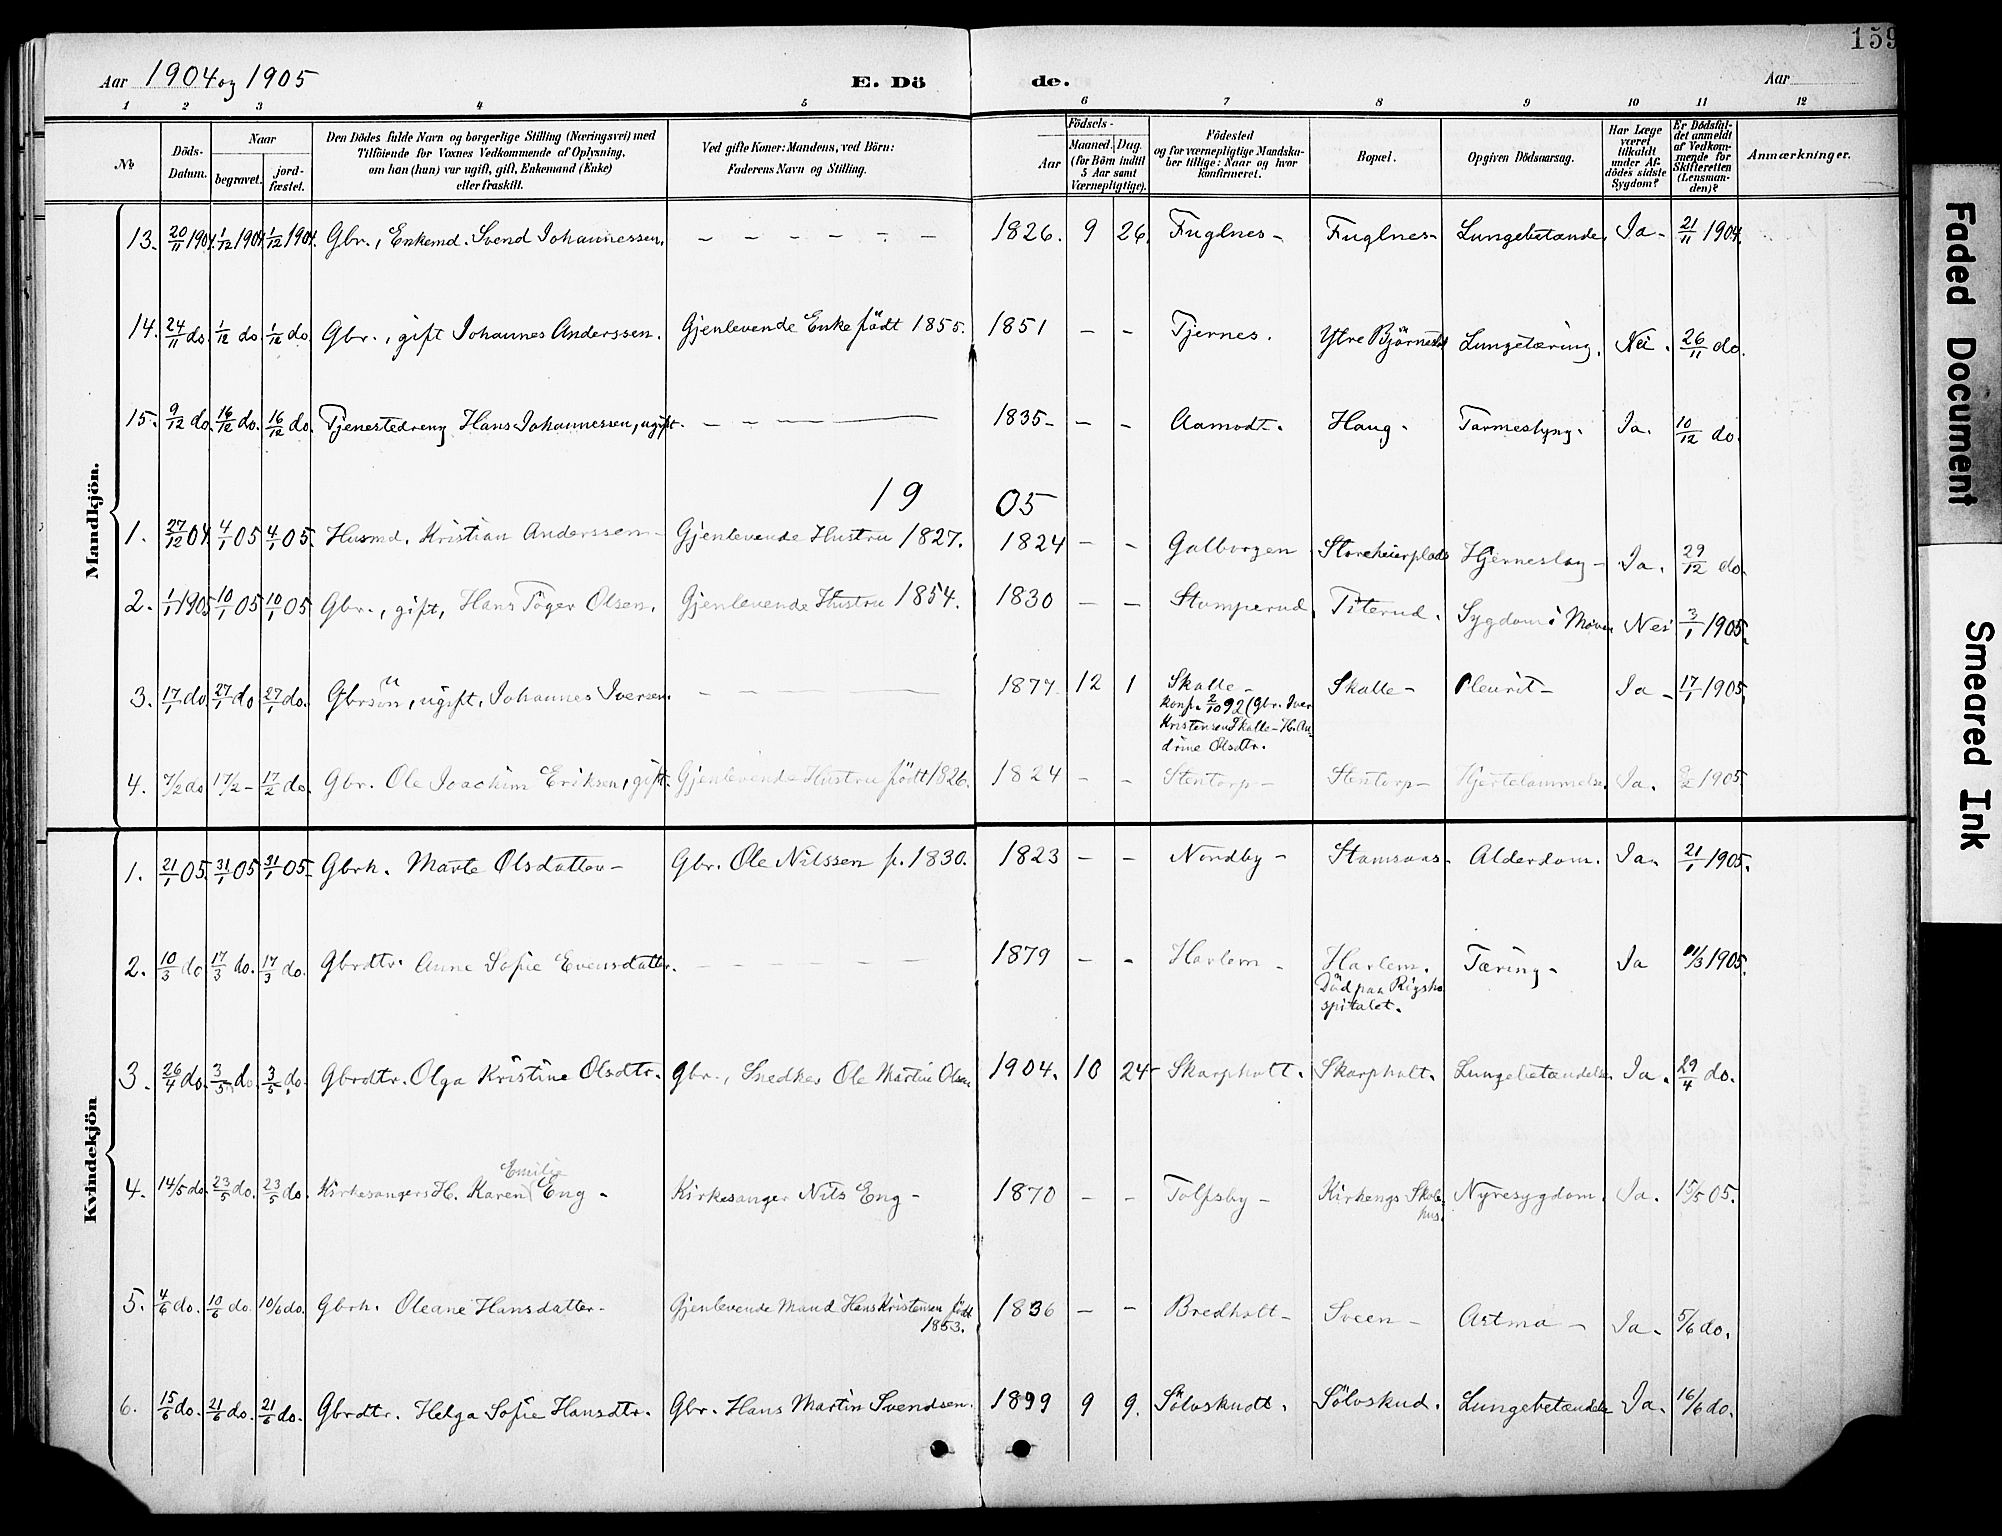 159
Aar 1904 og 1905 E. Dö de. Aar
1 2 3 4 5 6 7 8 9 10 11 12
No
Döds-Datum.
Naar
begravet.
jord-fæstet.
Den Dödes fulde Navn og borgerlige Stilling (Næringsvei) med
Tilföiende for Voxnes Vedkommende af Oplysning,
om han (hun) var ugift, gift, Enkemand (Enke)
eller fraskilt.
Ved gifte Koner: Mandens, ved Börn:
Faderens Navn og Stilling.
Födsels-
Aar
Maaned. Dag.
(for Börn indtil
5 Aar samt
Værnepligtige).
Födested
og for værnepligtige Mandska-
ber tillige: Naar og hvor
konfirmeret.
Bopæl.
Opgiven Dödsaarsag.
Har Læge
været
tilkaldt
under Af-
dödes sidste
Sygdom?
Er Dödsfal-
det anmeldt
af Vedkom-
mende for
Skifteretten
(Lensman-
den)?
Anmærkninger.
Mandkjön.
13. 20/11 1904. 1/12 1904. 1/12 1904. Gbr., Enkemd. Svend Johannessen. – – – – – – 1826. 9 26. Fuglnes – Fuglnes – Lungebetænde. Ja – 21/11 1904.
14. 24/11 do. 1/12 do. 1/12 do. Gbr., gift Johannes Anderssen. Gjenlevende Enke født 1855. 1851 – – Tjernes. Ytre Björnestad Lungetæring. Nei. 26/11 do.
15. 9/12 do. 16/12 do. 16/12 do. Tjenestedreng Hans Johannessen, ugift. – – – – 1835 – – – Aamodt. Haug. Tarmeslyng. Ja. 10/12 do.
19 05
1. 27/12 04. 4/1 05 4/1 05. Husmd. Kristian Anderssen – Gjenlevende Hustru 1827. 1824 – – Galborgen Storeheierplads Hjerneslag – Ja. 29/12 do.
2. 1/1 1905 10/1 05 10/1 05. Gbr., gift, Hans Töger Olsen. Gjenlevende Hustru 1854. 1830 – – Stomperud Titerud. Sygdom i Maven Nei 3/1 1905.
3. 17/1 do. 27/1 do 27/1 do. Gbrsön, ugift, Johannes Iversen. – – – – 1877 12 1 Skalle – Skalle – Pleurit – Ja – 17/1 1905.
konf. 2/10 92 (Gbr. Iver
Kristensen Skalle – H. An-
drine Olsdtr.
4. 7/2 do 17/2 – 17/2 do. Gbr. Ole Joachim Eriksen, gift. Gjenlevende Hustru født 1826. 1824 – – Stentorp – Stentorp – Hjertelammelse. Ja. 9/2 1905.
Kvindekjön
1. 21/1 05. 31/1 05 31/1 05. Gbrk. Marte Olsdatter – Gbr. Ole Nilssen f. 1830. 1823 – – Nordby – Stamsaas. Alderdom. Ja. 21/1 1905.
2. 10/3 do 17/3 do. 17/3 do. Gbrdtr. Anne Sofie Evensdatter. – – – – – 1879 – – Harlem – Harlem. Tæring – Ja 11/3 1905.
Död paa Rigsho
spitalet.
3. 26/4 do. 3/5 do. 3/5 do. Gbrdtr. Olga Kristine Olsdtr. Gbr., Snedker Ole Martin Olsen 1904. 10 24 – Skarpholt. Skarpholt. Lungebetændelse Ja. 29/4 do.
4. 14/5 do. 23/5 do. 23/5 do. Kirkesangers H. Karen Emilie Eng – Kirkesanger Nils Eng – 1870 – – Tolfsby – Kirkengs Skole- Nyresygdom. Ja. 15/5 05.
hus.
5. 4/6 do. 10/6 do. 10/6 do. Gbrk. Oleane Hansdatter – Gjenlevende Mand Hans Kristensen født 1836 – – Bredholt – Sveen – Astma – Ja. 5/6 do.
1853.
6. 15/6 do. 21/6 do. 21/6 do. Gbrdtr. Helga Sofie Hansdtr. Gbr. Hans Martin Svendsen. 1899 9 9. Sölvskudt. Sölvskud. Lungebetændelse Ja. 16/6 do.
Faded Document
Smeared Ink